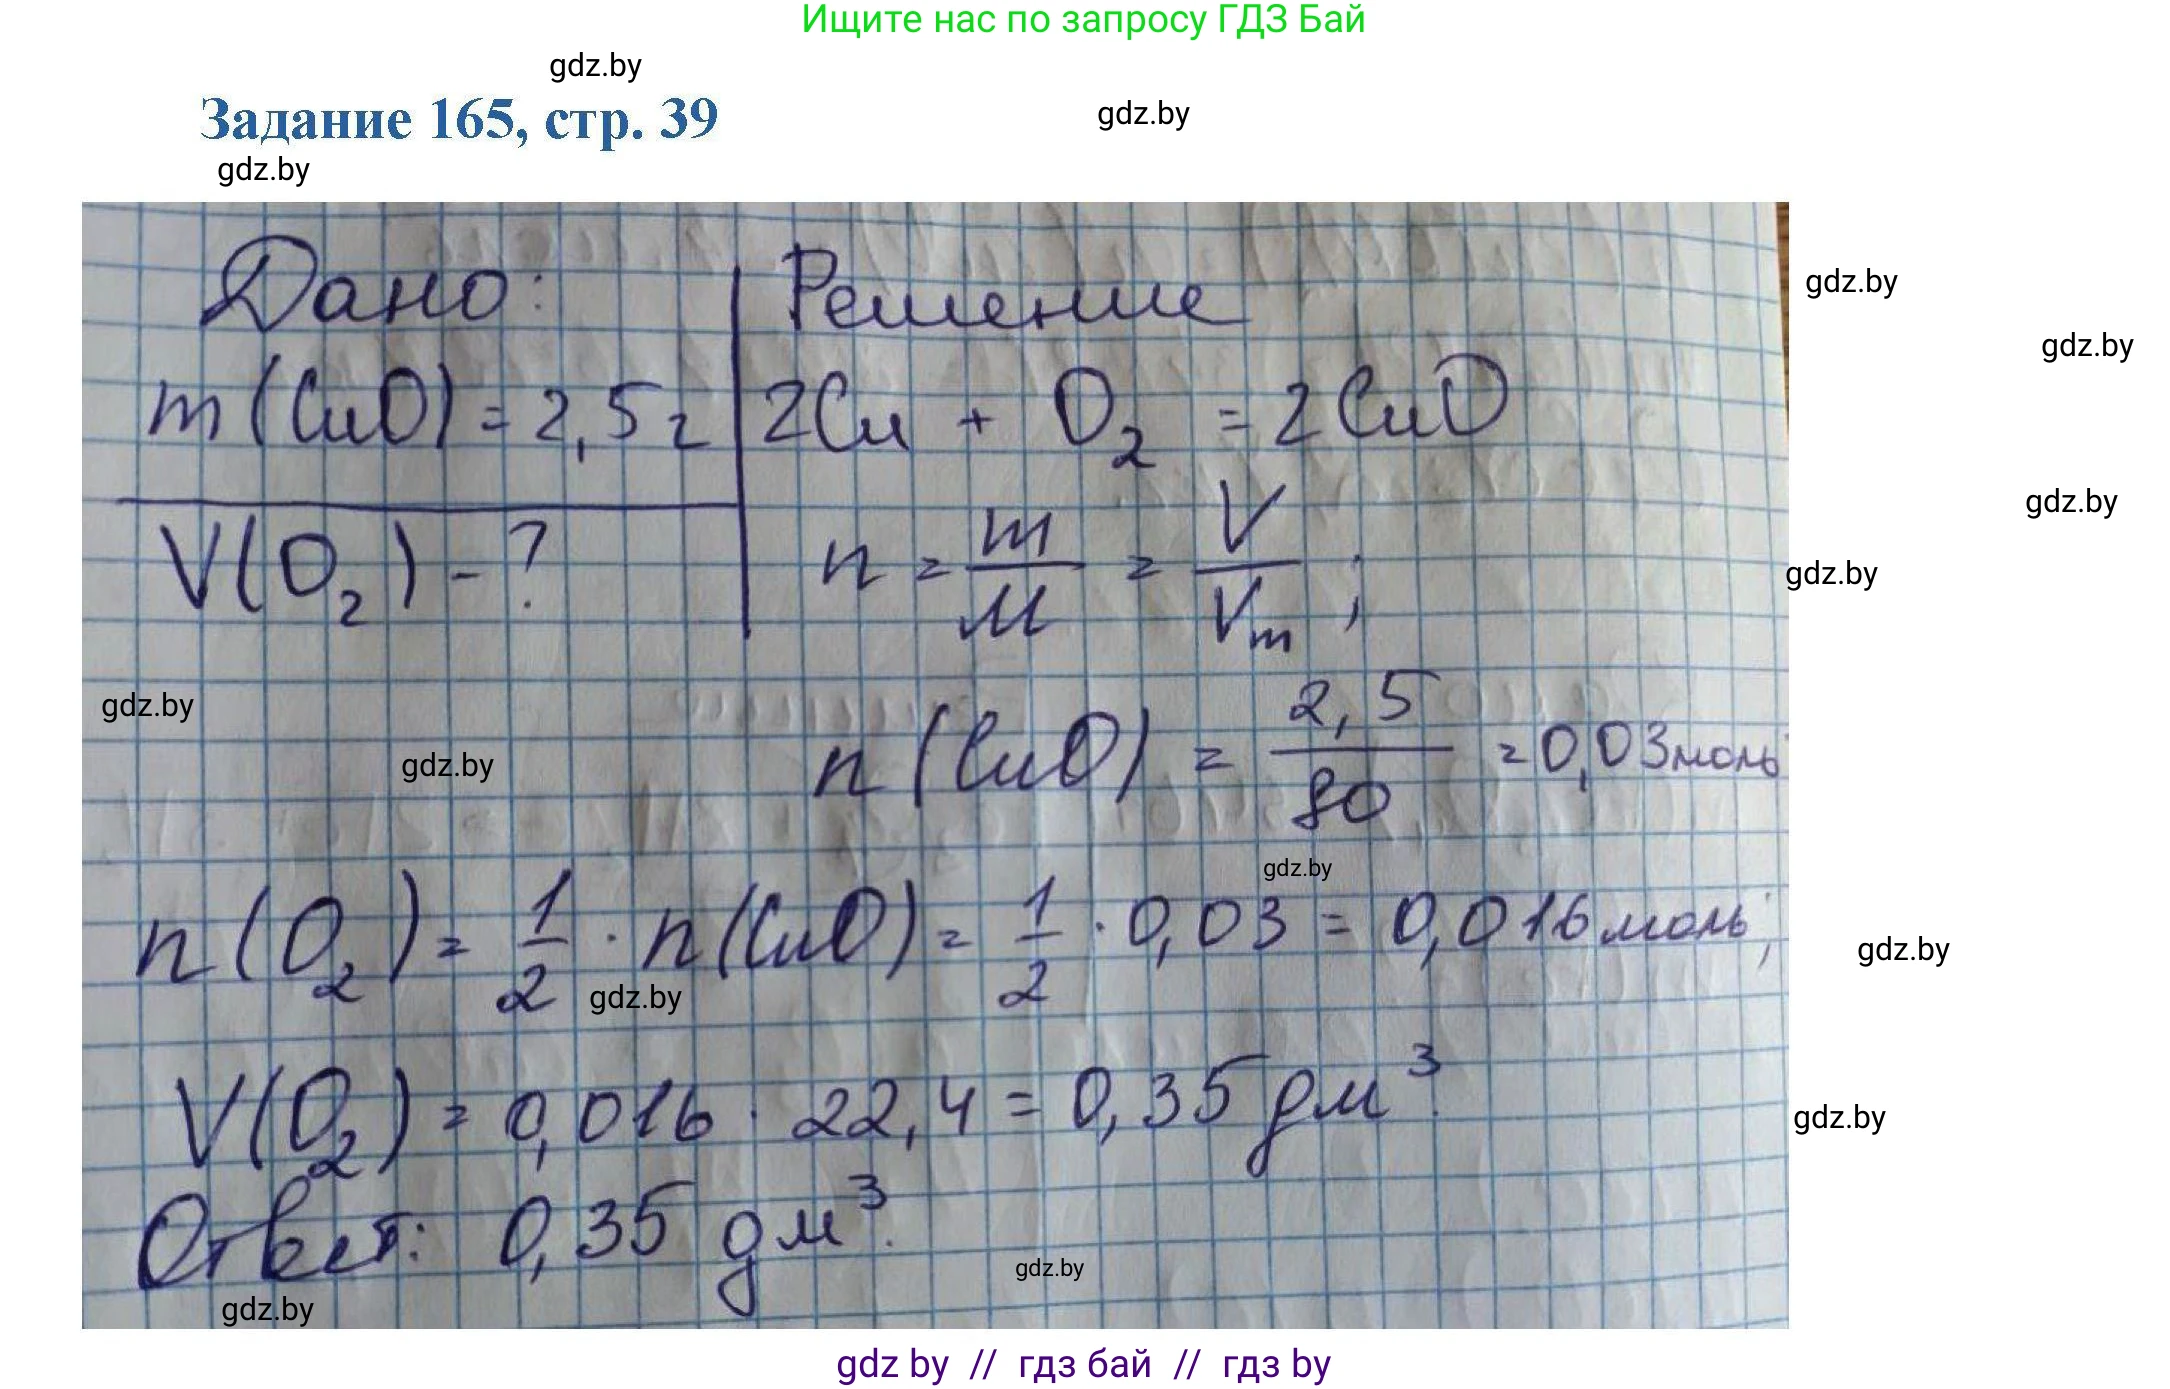 Ищите нас по запросу ГДЗ Бай
gdz.by
Задание 165, стр. 39
gdz.by
gdz.by
Дано: Решение
gdz.by
gdz.by
m(CuO) = 2,5 г 2Cu + O₂ = 2CuO
gdz.by
V(O₂) - ? n = m/M = V/Vm ;
gdz.by
gdz.by
gdz.by
n(CuO) = 2,5/80 = 0,03 моль
gdz.by
n(O₂) = 1/2 · n(CuO) = 1/2 · 0,03 = 0,016 моль;
gdz.by
gdz.by
V(O₂) = 0,016 · 22,4 = 0,35 дм³.
gdz.by
Ответ: 0,35 дм³.
gdz.by
gdz.by
gdz by // гдз бай // гдз by